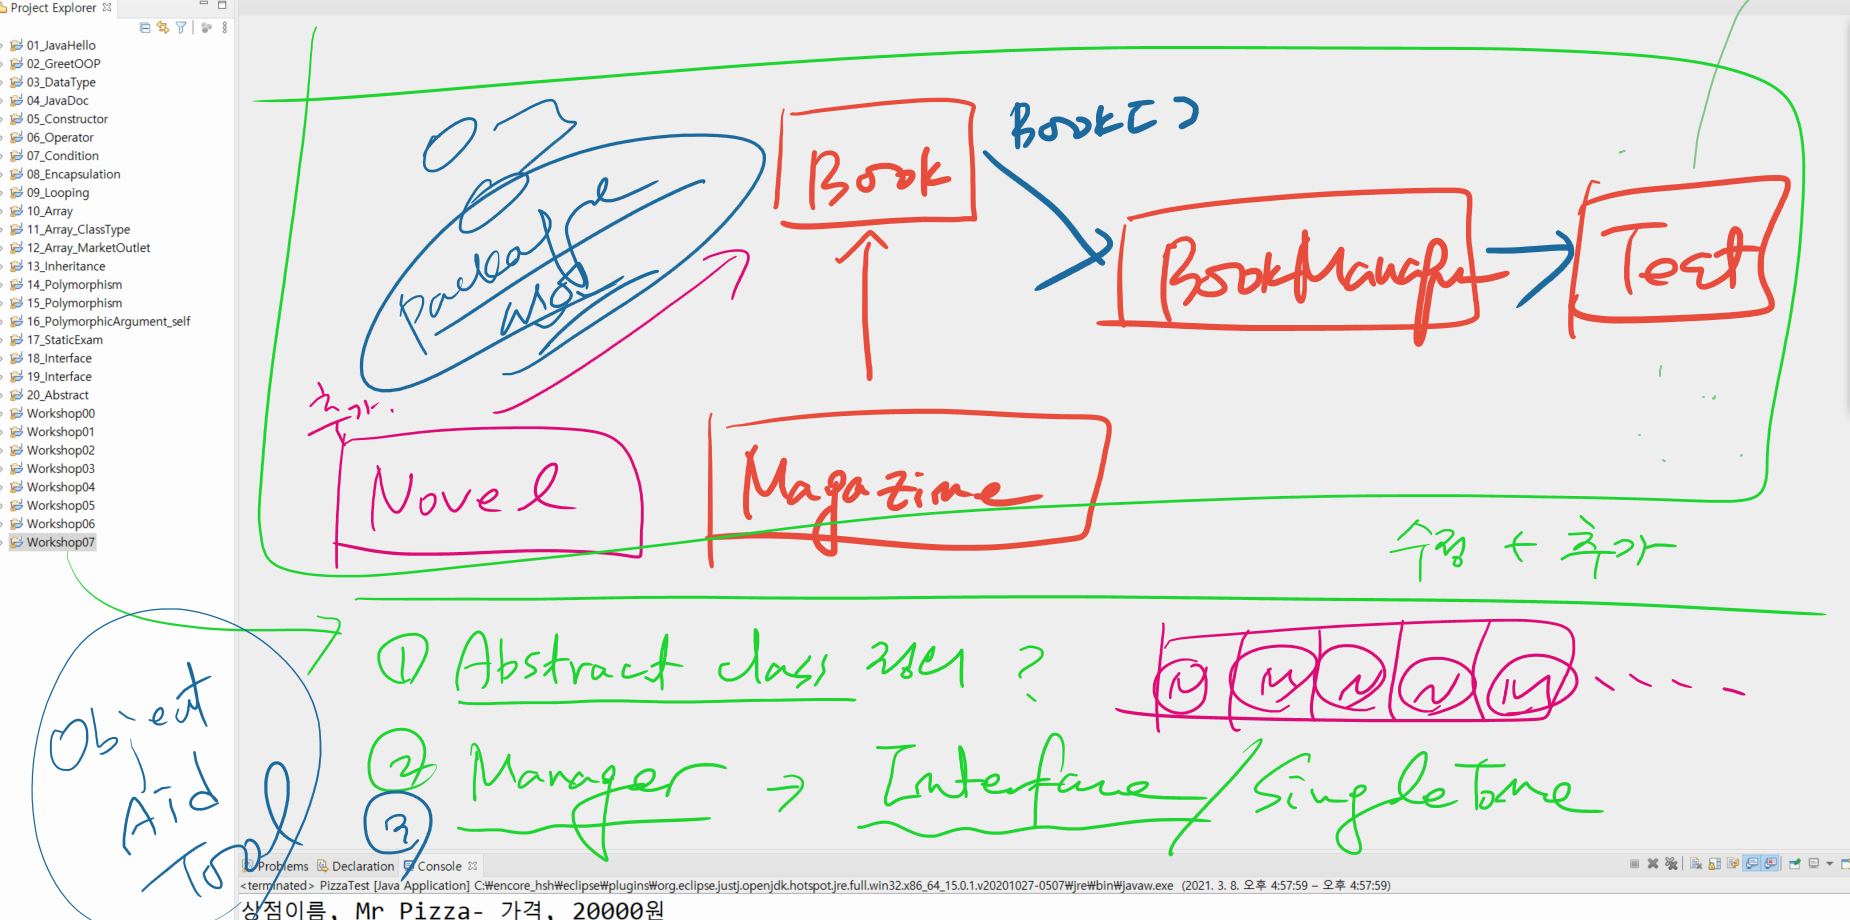 Project Explorer
01_JavaHello
02_GreetOOP
03_DataType
04_JavaDoc
05_Constructor
06_Operator
07_Condition
08_Encapsulation
09_Looping
10_Array
11_Array_ClassType
12_Array_MarketOutlet
13_Inheritance
14_Polymorphism
15_Polymorphism
16_PolymorphicArgument_self
17_StaticExam
18_Interface
19_Interface
20_Abstract
Workshop00
Workshop01
Workshop02
Workshop03
Workshop04
Workshop05
Workshop06
Workshop07
Book[]
Book
BookManager
Test
추가.
Novel
Magazine
수정 + 추가
① Abstract class 정의 ?
N M N N M
② Manager → Interface/SingleTone
③
Object
Aid
Tool
Problems Declaration Console
<terminated> PizzaTest [Java Application] C:₩encore_hsh₩eclipse₩plugins₩org.eclipse.justj.openjdk.hotspot.jre.full.win32.x86_64_15.0.1.v20201027-0507₩jre₩bin₩javaw.exe (2021. 3. 8. 오후 4:57:59 – 오후 4:57:59)
상점이름, Mr Pizza- 가격, 20000원